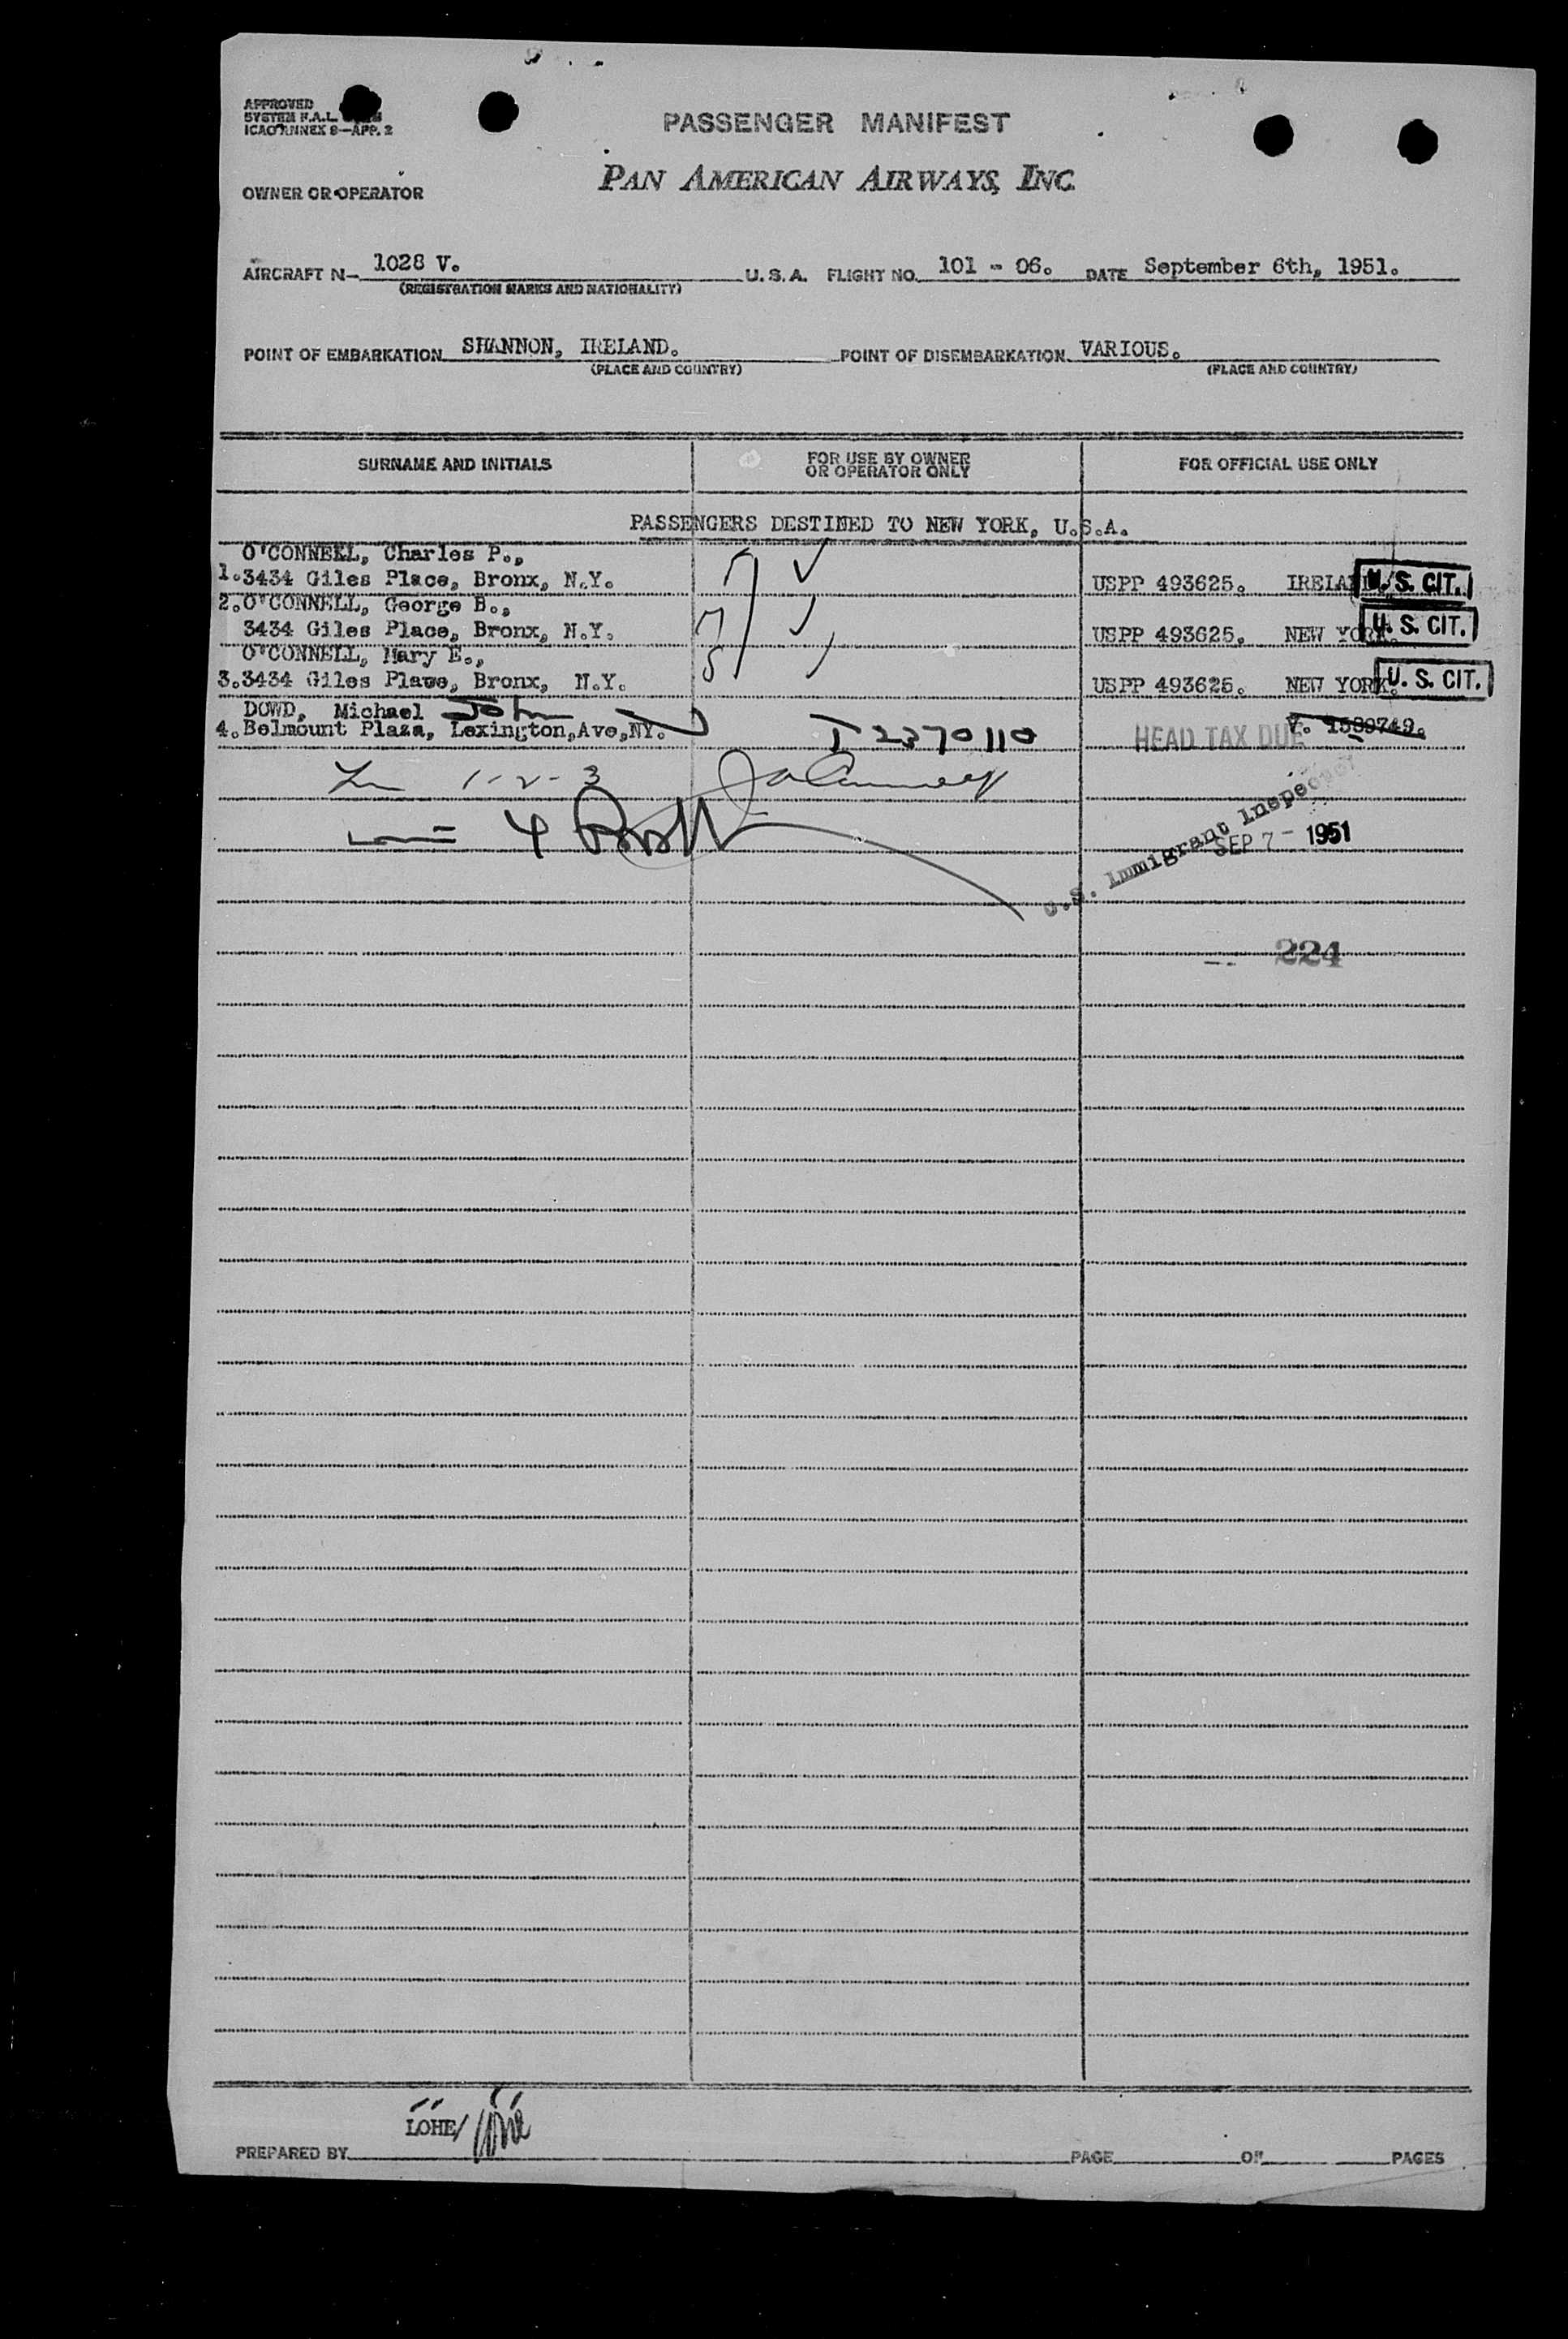 APPROVED
SYSTEM F.A.L.
ICAO ANNEX 9—APP. 2
PASSENGER MANIFEST
OWNER OR OPERATOR
PAN AMERICAN AIRWAYS, INC.
AIRCRAFT N— 1028 V. U. S. A. FLIGHT NO. 101 - 06. DATE September 6th, 1951.
(REGISTRATION MARKS AND NATIONALITY)
POINT OF EMBARKATION SHANNON, IRELAND. POINT OF DISEMBARKATION VARIOUS.
(PLACE AND COUNTRY) (PLACE AND COUNTRY)
SURNAME AND INITIALS FOR USE BY OWNER OR OPERATOR ONLY FOR OFFICIAL USE ONLY
PASSENGERS DESTINED TO NEW YORK, U.S.A.
O'CONNELL, Charles P.,
1. 3434 Giles Place, Bronx, N.Y. USPP 493625. IRELAND U. S. CIT.
2. O'CONNELL, George B.,
3434 Giles Place, Bronx, N.Y. USPP 493625. NEW YORK. U. S. CIT.
O'CONNELL, Mary E.,
3. 3434 Giles Plawe, Bronx, N.Y. USPP 493625. NEW YORK. U. S. CIT.
DOWD, Michael John
4. Belmount Plaza, Lexington,Ave,NY. I 2370110 HEAD TAX DUE V.
1-2-3
4
U.S. Immigrant Inspector
SEP 7 - 1951
224
LOHE/
PREPARED BY PAGE OF PAGES